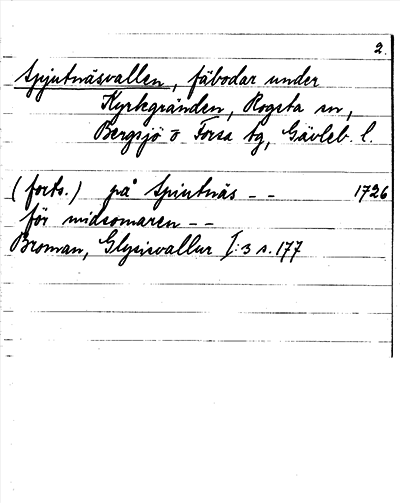 2.
Spjutnäsvallen, fäbodar under
Kyrkgränden, Rogsta sn,
Bergsjö o Forsa tg, Gävleb. l.
(forts.) på Spiutnäs – – 1726
för midsomaren – –
Broman, Glysisvallur I:3 s. 177